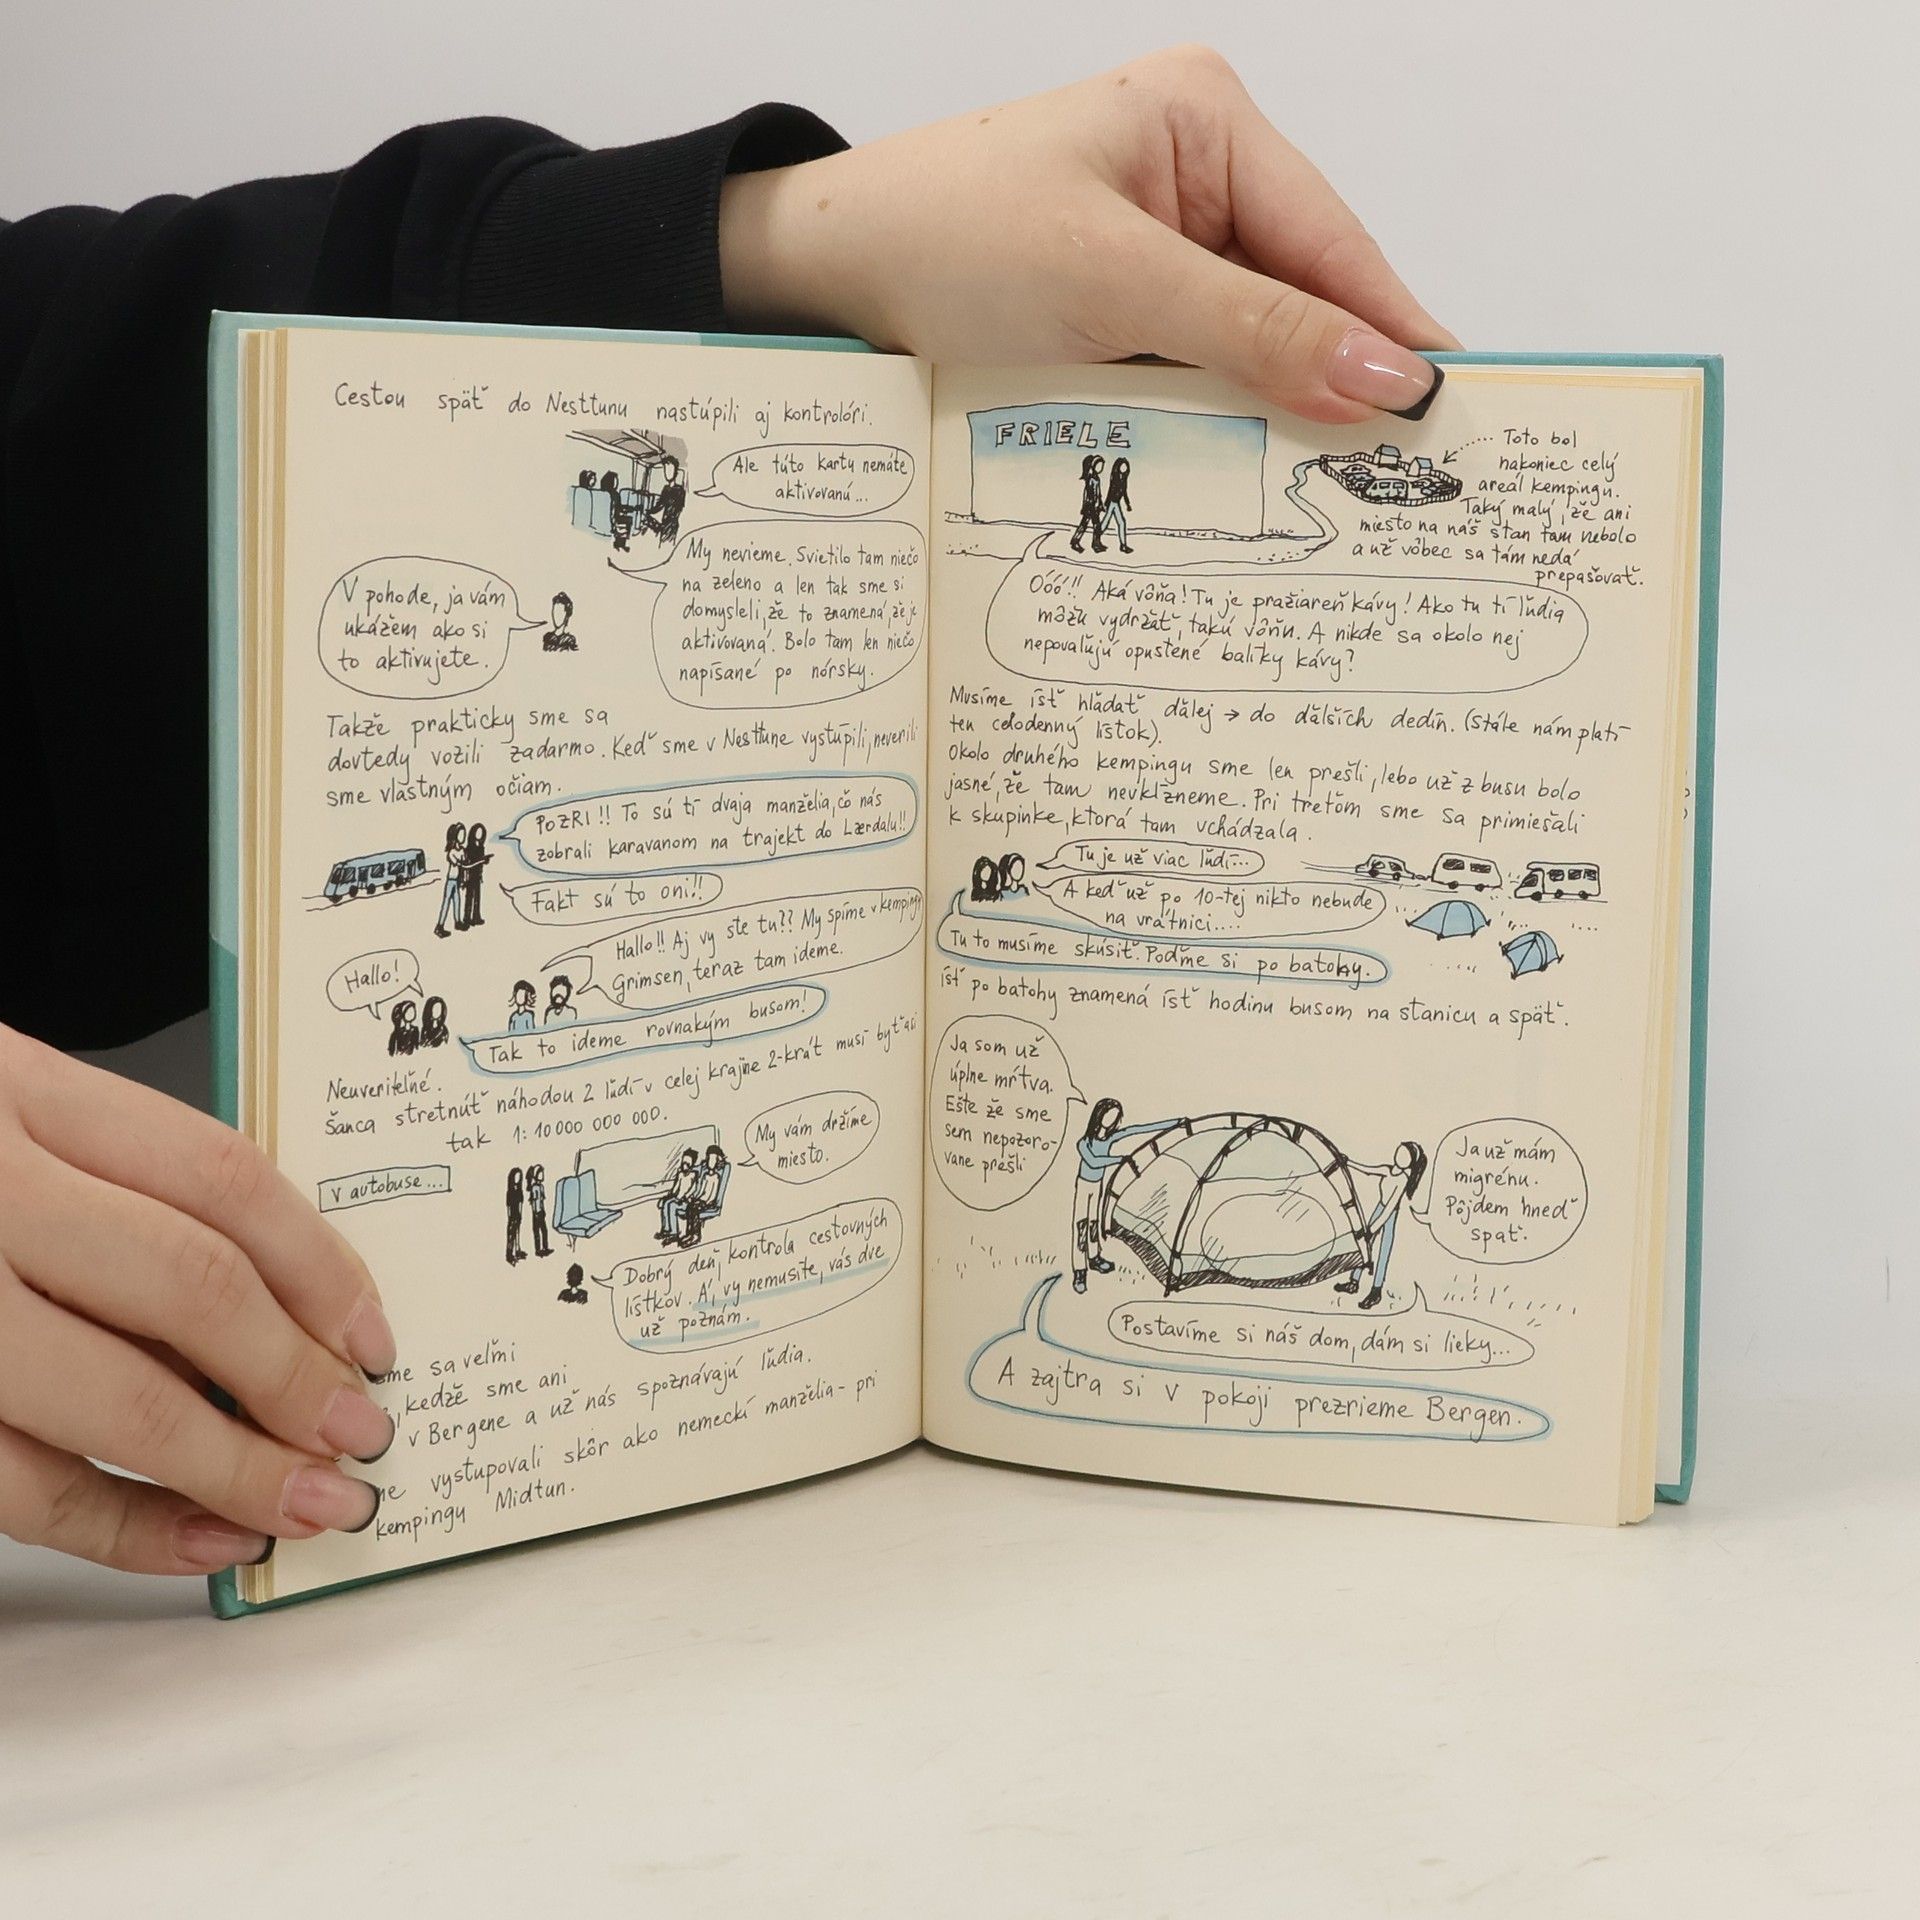 Cestou späť do Nesttunu nastúpili aj kontrolóri.
Ale túto kartu nemáte
aktivovanú...
My nevieme. Svietilo tam niečo
na zeleno a len tak sme si
domysleli, že to znamená, že je
aktivovaná. Bolo tam len niečo
napísané po nórsky.
V pohode, ja vám
ukážem ako si
to aktivujete.
Takže prakticky sme sa
dovtedy vozili zadarmo. Keď sme v Nesttune vystúpili, neverili
sme vlastným očiam.
POZRI!! To sú tí dvaja manželia, čo nás
zobrali karavanom na trajekt do Lærdalu!!
Fakt sú to oni!!
Hallo!! Aj vy ste tu?? My spíme v kempingu
Grimsen, teraz tam ideme.
Hallo!
Tak to ideme rovnakým busom!
Neuveriteľné.
Šanca stretnúť náhodou 2 ľudí v celej krajine 2-krát musí byť asi
tak 1:10 000 000 000.
V autobuse...
My vám držíme
miesto.
Dobrý deň, kontrola cestovných
lístkov. Á, vy nemusíte, vás dve
už poznám.
me sa veľmi
, keďže sme ani
v Bergene a už nás spoznávajú ľudia.
me vystupovali skôr ako nemeckí manželia- pri
kempingu Midtun.
FRIELE
Toto bol
nakoniec celý
areál kempingu.
Taký malý, že ani
miesto na náš stan tam nebolo
a už vôbec sa tam nedá
prepašovať.
Óóó!! Aká vôňa! Tu je pražiareň kávy! Ako tu tí ľudia
môžu vydržať, takú vôňu. A nikde sa okolo nej
nepovaľujú opustené balíky kávy?
Musíme ísť hľadať ďalej → do ďalších dedín. (Stále nám platí
ten celodenný lístok).
Okolo druhého kempingu sme len prešli, lebo už z busu bolo
jasné, že tam nevkĺzneme. Pri treťom sme sa primiešali
k skupinke, ktorá tam vchádzala.
Tu je už viac ľudí...
A keď už po 10-tej nikto nebude
na vrátnici....
Tu to musíme skúsiť. Poďme si po batohy.
ísť po batohy znamená ísť hodinu busom na stanicu a späť.
Ja som už
úplne mŕtva.
Ešte že sme
sem nepozoro-
vane prešli
Ja už mám
migrénu.
Pôjdem hneď
spať.
Postavíme si náš dom, dám si lieky...
A zajtra si v pokoji prezrieme Bergen.